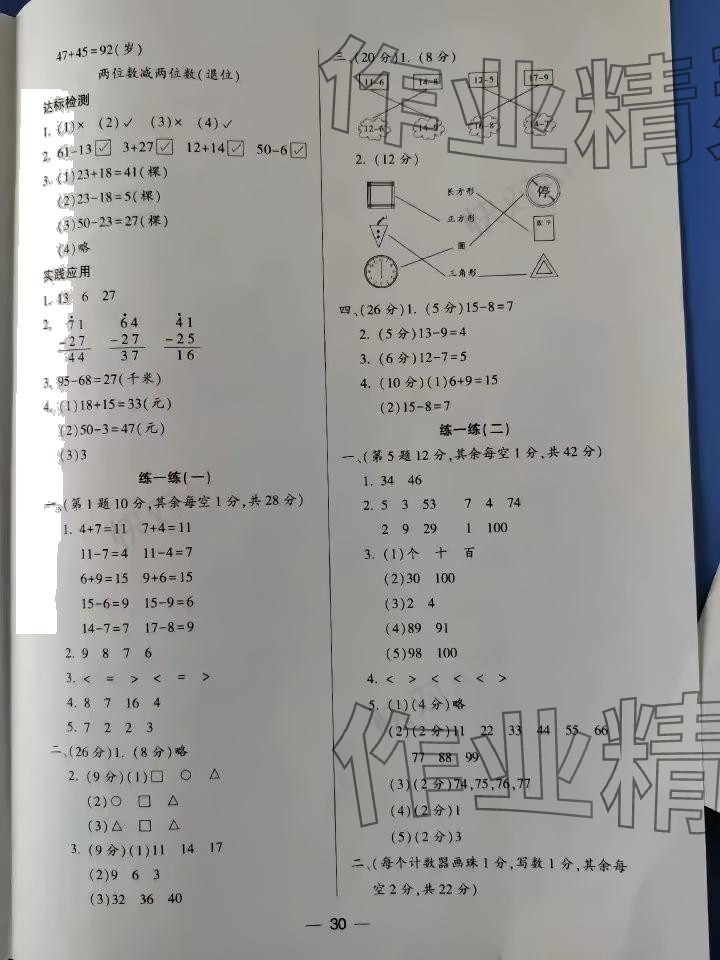 47+45=92(岁)
两位数减两位数(退位)
达标检测
1. (1)× (2)✓ (3)× (4)✓
2. 61-13☑ 3+27☑ 12+14☑ 50-6☑
3. (1)23+18=41(棵)
(2)23-18=5(棵)
(3)50-23=27(棵)
(4)略
实践应用
1. 13 6 27
2. 71 64 41
-27 -27 -25
44 37 16
3. 95-68=27(千米)
4. (1)18+15=33(元)
(2)50-3=47(元)
(3)3
练一练(一)
一、(第1题10分,其余每空1分,共28分)
1. 4+7=11 7+4=11
11-7=4 11-4=7
6+9=15 9+6=15
15-6=9 15-9=6
14-7=7 17-8=9
2. 9 8 7 6
3. < = > < = >
4. 8 7 16 4
5. 7 2 2 3
二、(26分)1. (8分)略
2. (9分)(1)□ ○ △
(2)○ □ △
(3)△ □ △
3. (9分)(1)11 14 17
(2)9 6 3
(3)32 36 40
三、(20分)1. (8分)
11-6 14-8 12-5 17-9
12-6 14-9 16-8 14-7
2. (12分)
长方形
停
正方形
数学
圆
三角形
四、(26分)1. (5分)15-8=7
2. (5分)13-9=4
3. (6分)12-7=5
4. (10分)(1)6+9=15
(2)15-8=7
练一练(二)
一、(第5题12分,其余每空1分,共42分)
1. 34 46
2. 5 3 53 7 4 74
2 9 29 1 100
3. (1)个 十 百
(2)30 100
(3)2 4
(4)89 91
(5)98 100
4. < > < < < >
5. (1)(4分)略
(2)(2分)11 22 33 44 55 66
77 88 99
(3)(2分)74,75,76,77
(4)(2分)1
(5)(2分)3
二、(每个计数器画珠1分,写数1分,其余每
空2分,共22分)
— 30 —
作业精
作业精